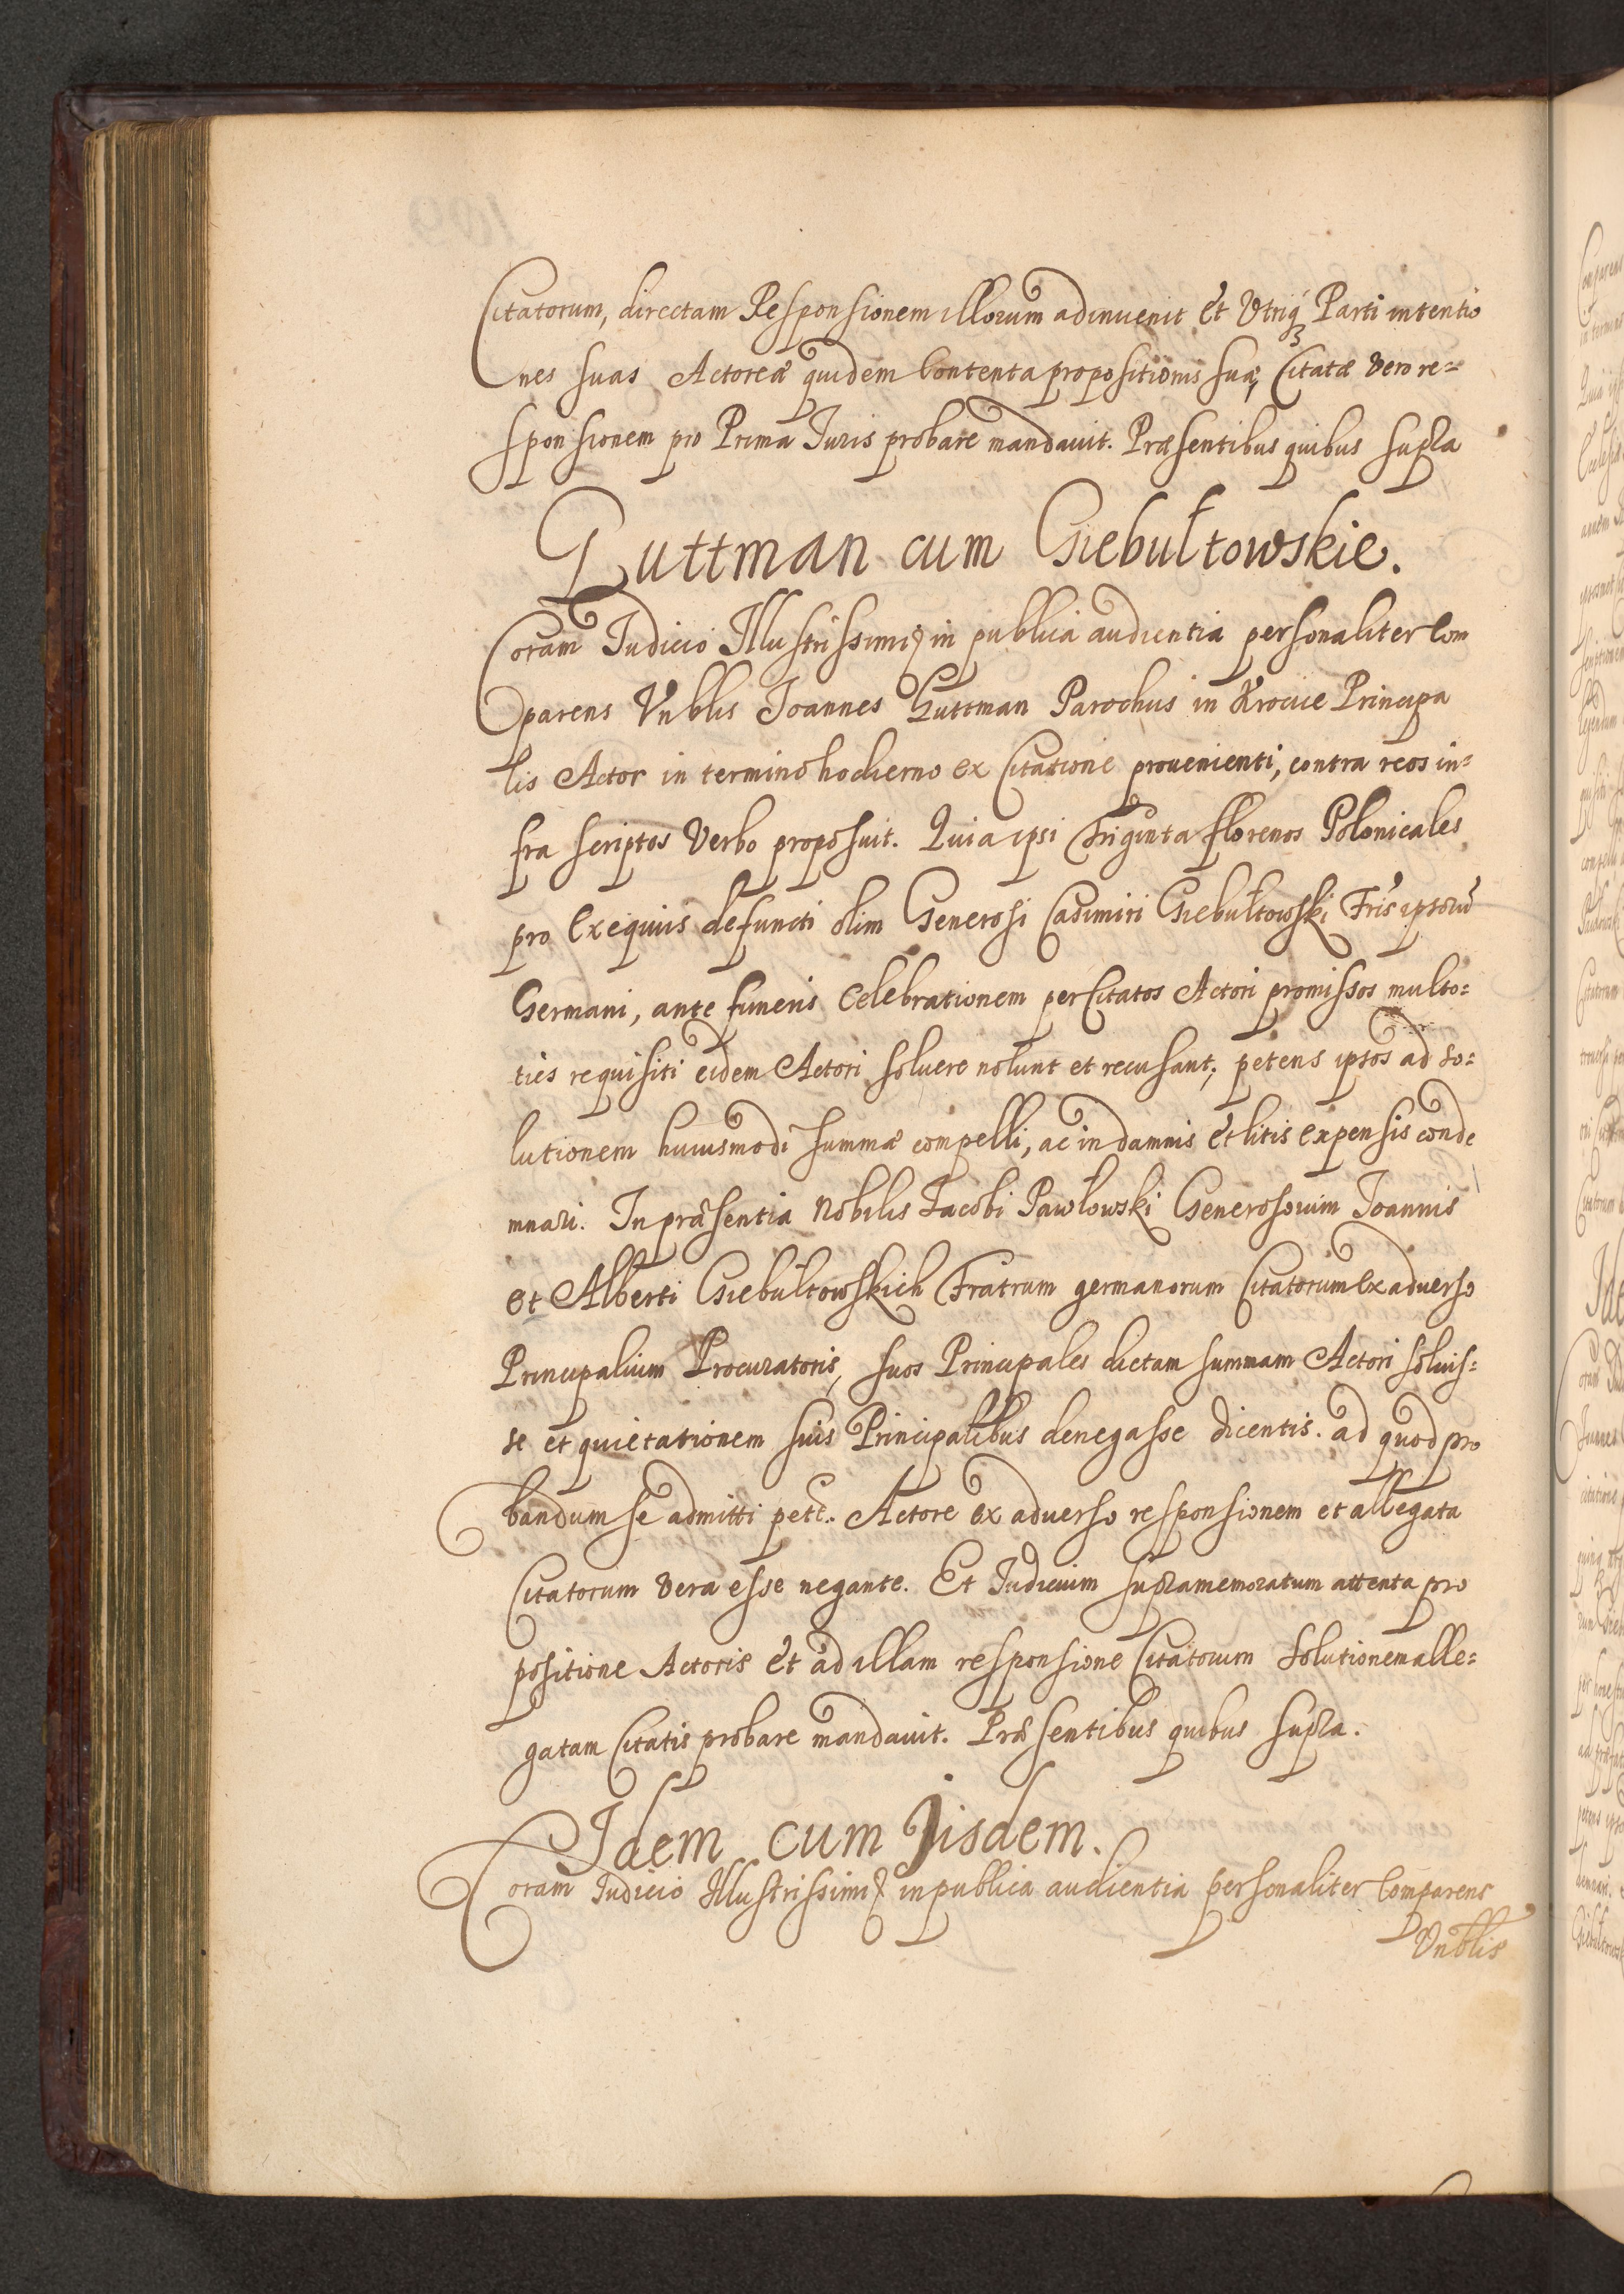 Citatorum, directam Responsionem illorum adinuenit Et Vtriq3 Parti intentio
nes suas Actoreæ quidem Contenta propositionis suæ, Citatæ Vero re=
sponsionem pro Prima Iuris probare mandauit. Præsentibus quibus supra
Luttman cum Giebułtowskie.
Coram Iudicio Illustrissimi & in publica audientia personaliter Com
parens Vnblis Ioannes Luttman Parochus in Krocice Principa
lis Actor in termino hodierno ex Citatione prouenienti, contra reos in=
fra scriptos Verbo proposuit. Quia ipsi Triginta florenos Polonicales
pro Exequiis defuncti olim Generosi Casimiri Giebułtowski Fris ipsorū
Germani, ante funeris Celebrationem per Citatos Actori promissos multo=
ties requisiti eidem Actori soluere nolunt et recusant; petens ipsos ad so=
lutionem huiusmodi summæ compelli, ac in damnis Et litis Expensis conde
mnari. In præsentia Nobilis Iacobi Pawłowski Generosorum Ioannis
et Alberti Giebułtowskich Fratrum germanorum Citatorum Ex aduerso
Principalium Procuratoris, suos Principales dictam summam Actori soluis=
se et quietationem suis Principalibus denegasse dicentis. ad quod pro
bandum se admitti pett. Actore ex aduerso responsionem et allegata
Citatorum Vera esse negante. Et Iudicium supramemoratum attenta pro
positione Actoris Et ad illam responsione Citatorum Solutionem alle=
gatam Citatis probare mandauit. Præsentibus quibus supra.
Idem cum Iisdem.
Coram Iudicio Illustrissimi & in publica audientia personaliter Comparens
Vnblis